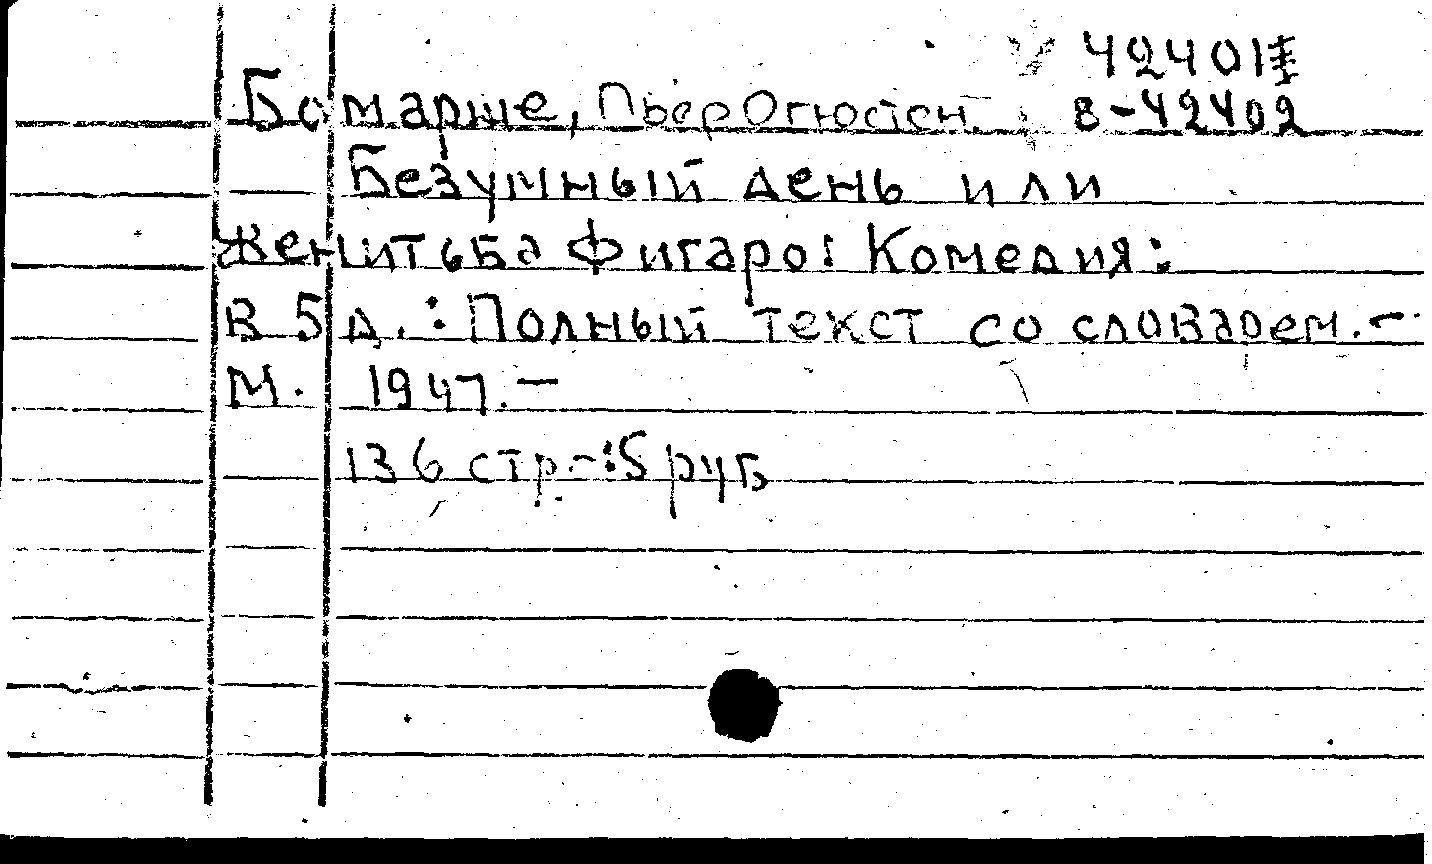 42401
Бомарше, Пьер Огюстен. в-42402
Безумный день или
женитьба Фигаро: Комедия:
в 5 д. : Полный текст со словарем.-
М. 1947.—
136 стр.-:5 руб